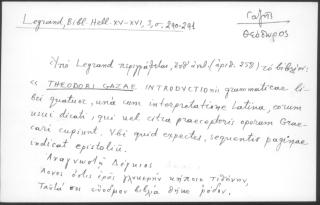 Legrand, Bibl. Hell. XV-XVI, 3, σ. 290-291
Γαζῆς
Θεόδωρος
Ὑπὸ Legrand περιγράφεται, ἀριθ. 258) τὸ βιβλίον:
« THEODORI GAZAE INTRODUCTIONIS grammaticae li-
bri quatuor, unà cum interpretatione Latina, eorum
usui dicati, qui vel citra praeceptoris operam Grae-
cari cupiunt. Vbi quid expectes, sequentis paginae
indicat epistolium.
Ἀναγνωστῇ
ὅστις ἐρᾷς γλυκερὴν
Ταῦτά σοι βιβλία θῆκε ῥόδον.